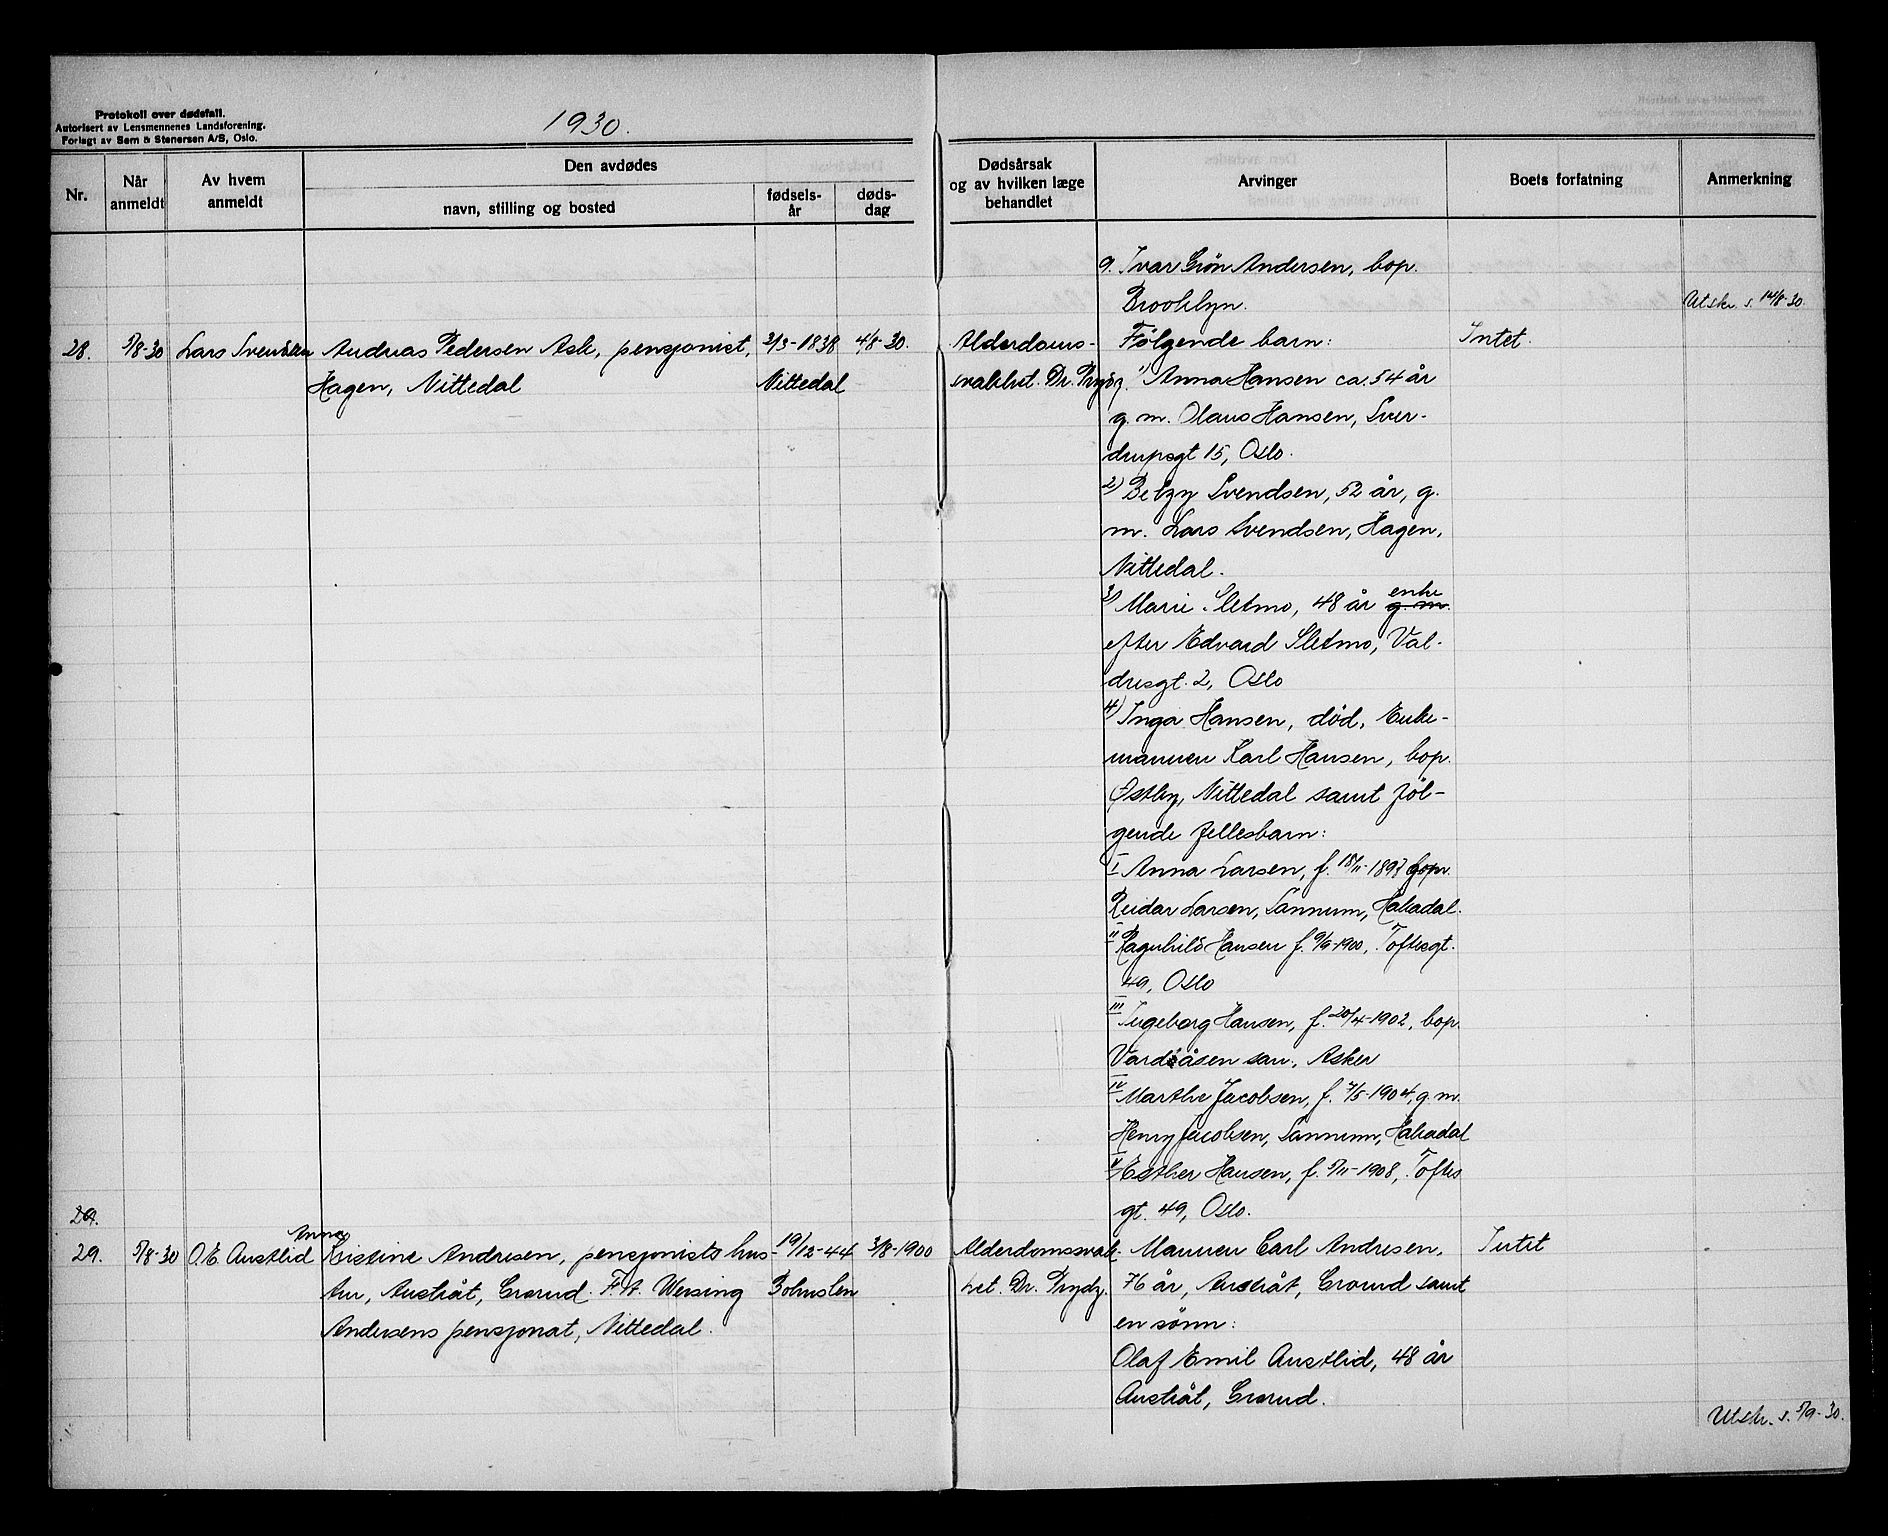 Protokoll over dødsfall.
Autorisert av Lensmennenes Landsforening.
Forlagt av Sem & Stenersen A/S, Oslo.
1930.
Nr.
Når anmeldt
Av hvem anmeldt
Den avdødes
navn, stilling og bosted
fødsels-
år
døds-
dag
Dødsårsak
og av hvilken læge
behandlet
Arvinger
Boets forfatning
Anmerkning
9. Ivar Grön Andersen, bop.
Brooklyn.
Utskr. s. 14/8-30.
28.
5/8-30
Lars Svendsen
Andreas Pedersen Ask, pensjonist,
Hagen, Nittedal
2/3-1838
Nittedal
4/8-30.
Alderdoms-
svakhet. Dr. Prydz.
Følgende barn:
1) Anna Hansen ca. 54 år
g. m. Olaus Hansen, Sver-
drupsgt 15, Oslo.
2) Betzy Svendsen, 52 år, g.
m. Lars Svendsen, Hagen,
Nittedal.
3) Marie Sletmo, 48 år g. m. enke
efter Edvard Sletmo, Val-
dresgt. 2, Oslo
4) Inga Hansen, död, Enke-
mannen Karl Hansen, bop.
Østby, Nittedal samt föl-
gende fellesbarn:
I Anna Larsen, f. 18/11-1897
Reidar Larsen, Sannum, Hakadal.
II Ragnhild Hansen f. 9/9-1900, Toftesgt.
49, Oslo
III Ingeborg Hansen, f. 20/4-1902, bop.
Vardåsen san., Asker
IV Marthe Jacobsen, f. 7/5-1904, g. m.
Henry Jacobsen, Sannum, Hakadal
V Esther Hansen, f. 5/11-1908, Toftes
gt. 49, Oslo.
Intet.
29.
29.
5/8-30
O. E. Austlid
Anna
Kristine Andresen, pensjonists hus-
tru, Austråt, Grorud. F. t. Wessing
Andersens pensjonat, Nittedal.
19/12-44
Bohuslen
3/8-1900
Alderdomssvak-
het. Dr. Prydz.
Mannen Carl Andresen,
76 år, Austråt, Grorud samt
en sönn:
Olaf Emil Austlid, 48 år
Austråt, Grorud.
Intet
Utskr. s. 5/9-30.